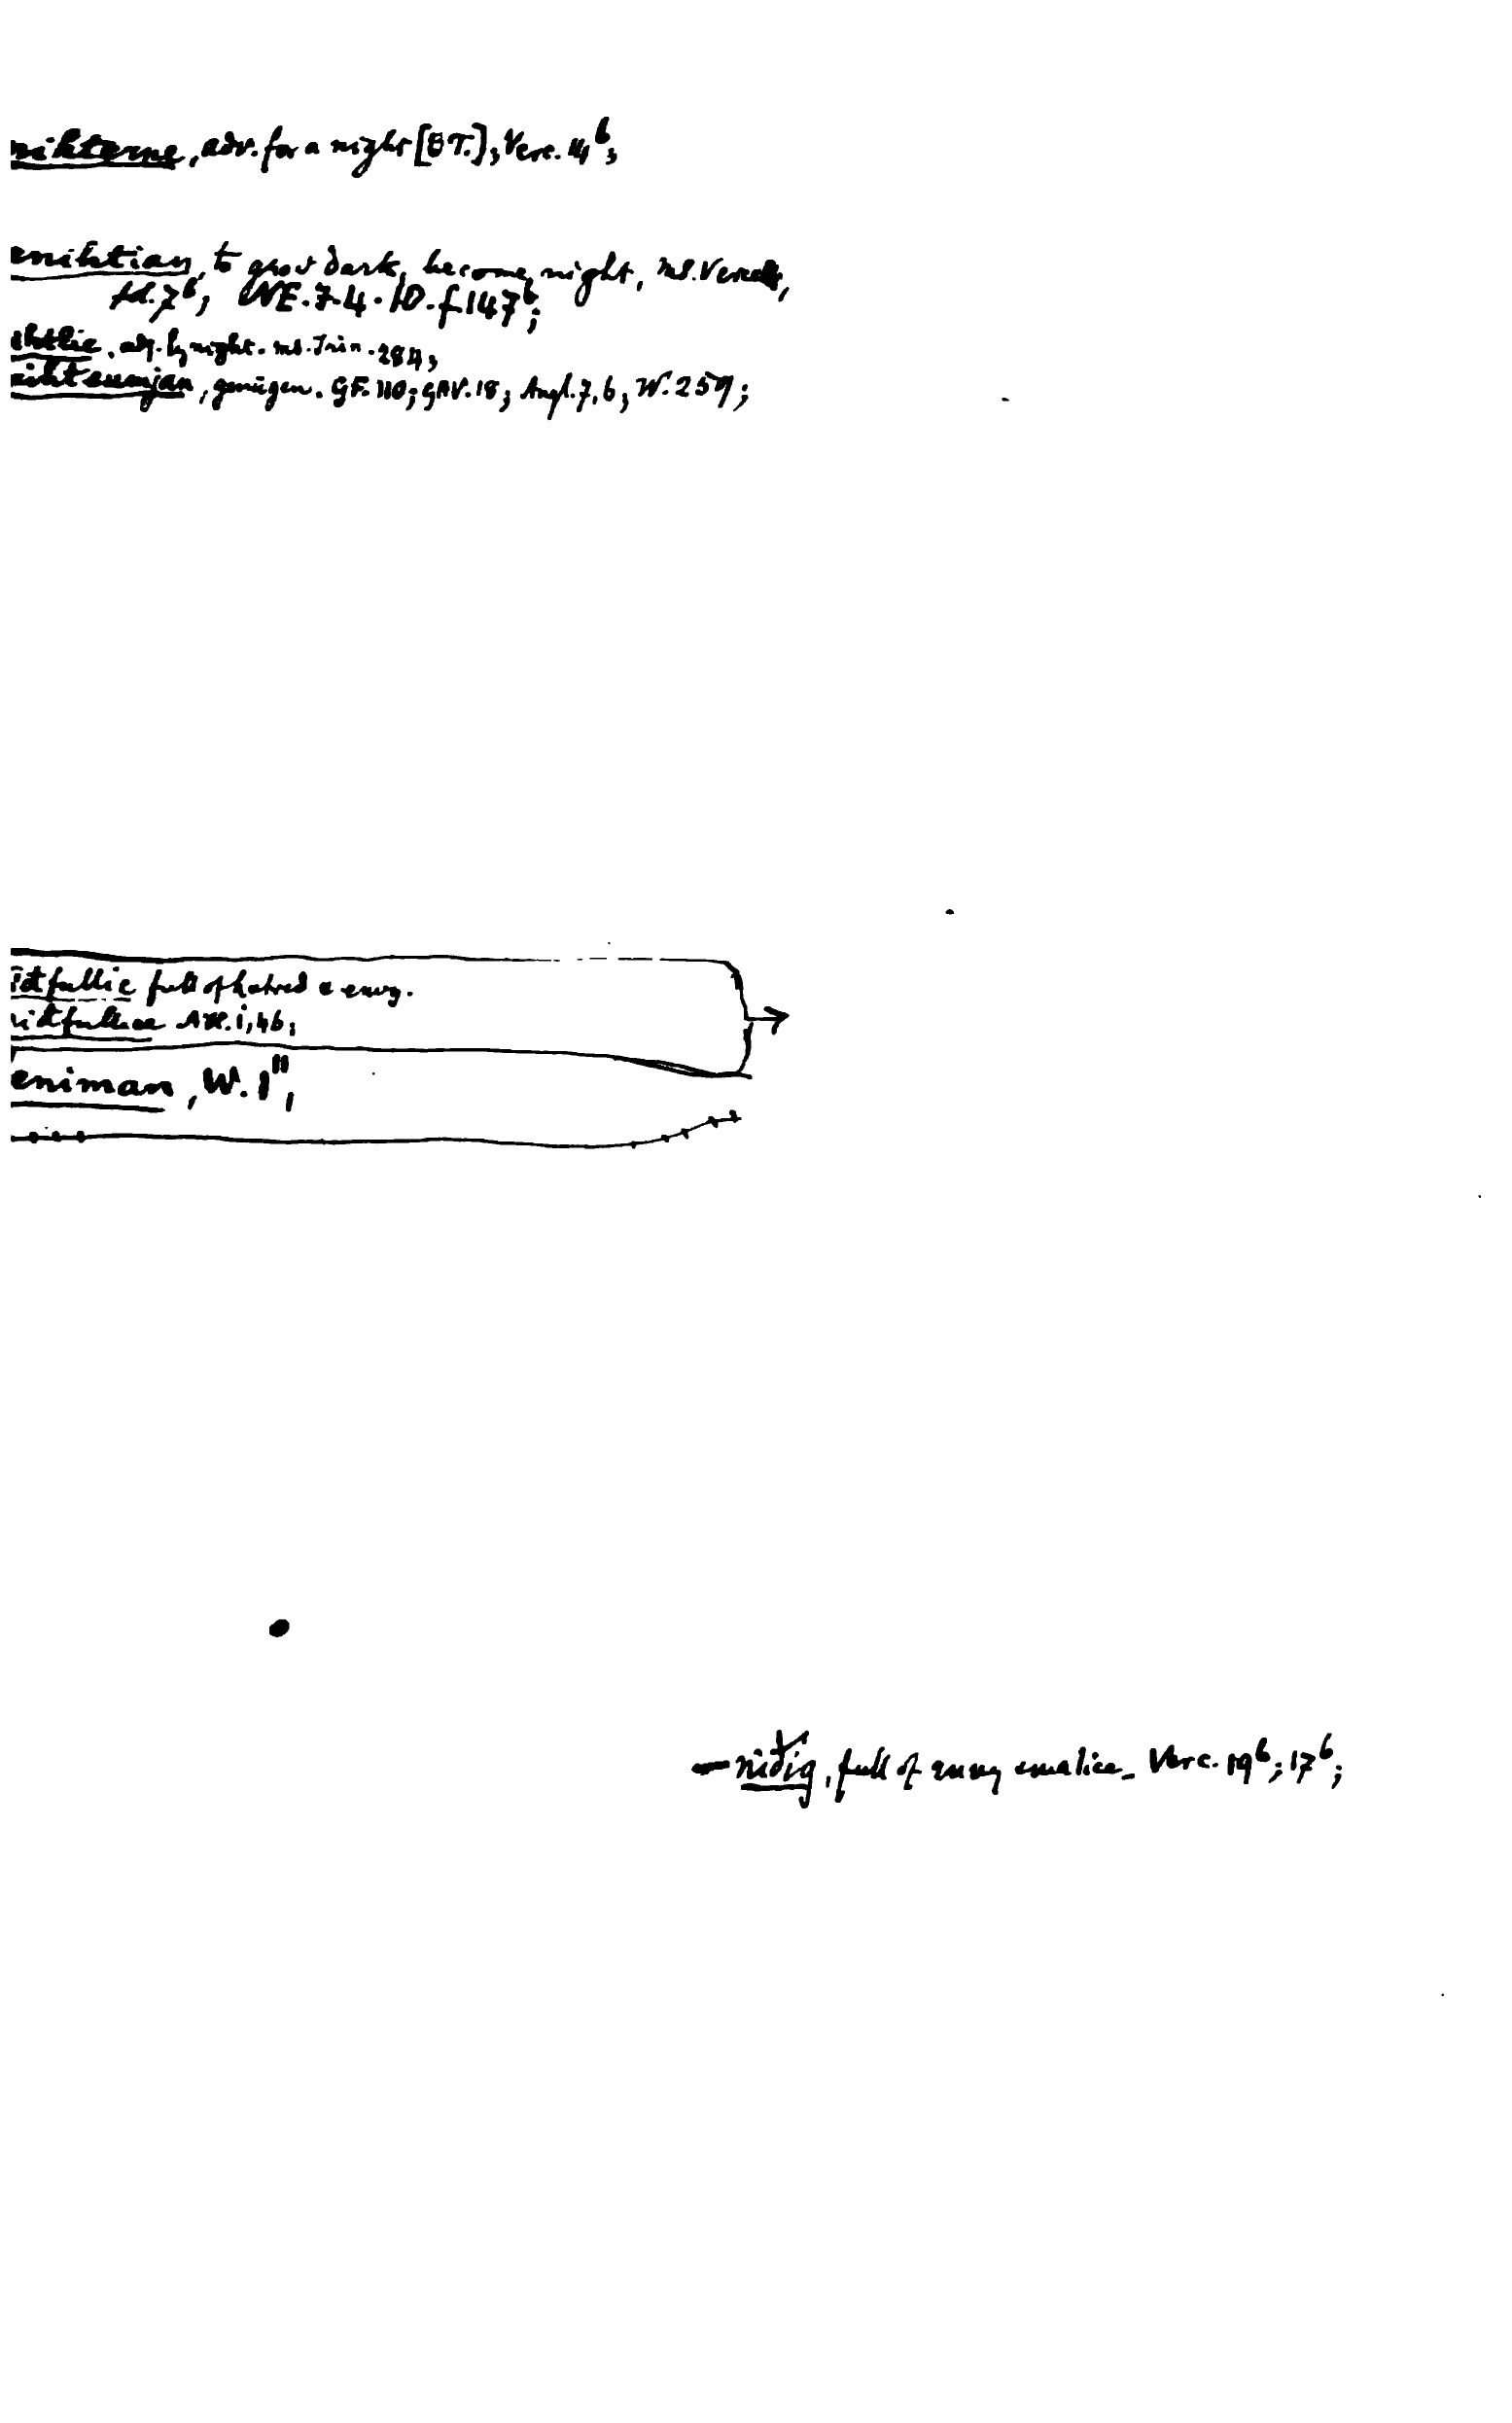 nihterne, adv. for a night [BT.]; Verc. 14b;
enihtian, to grow dark, become night, ms. Vercelli,
fol. 7b; WE. 7-4-10. f. 147b;
ihtlic, adj. by night. ms. Trin. 284;
nihtsumjan, genügen. GF. 110; GAV. 18; Angl. 7, 6; W. 259;
idfullic full of hatred & envy.
nidfullice i, 46;
eniman, W. 1",
— niðig, full of envy & malice_ Verc. 19b; 17b;